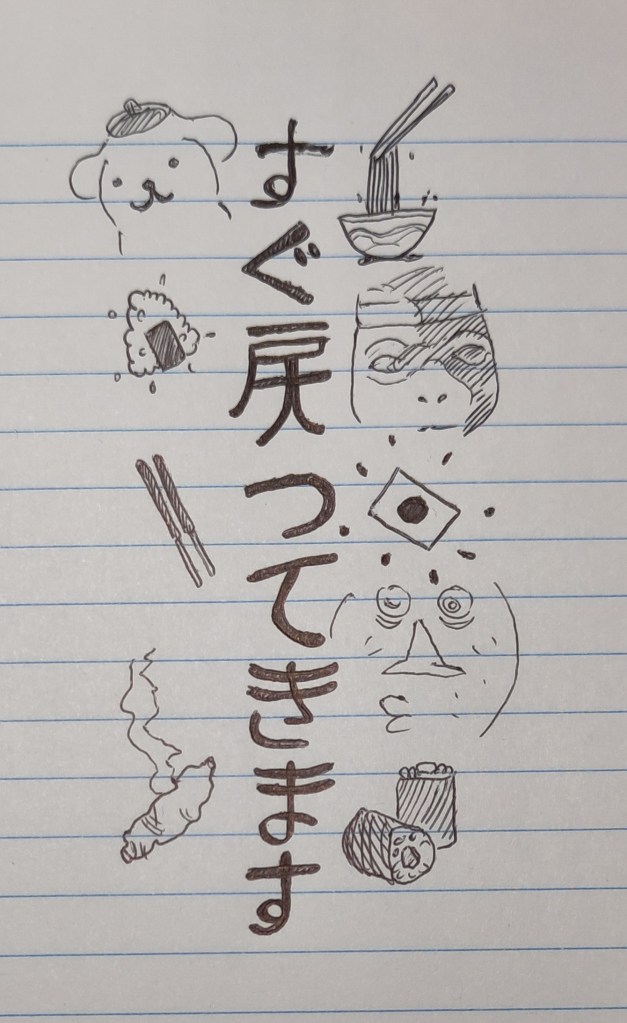 すぐ戻ってきます